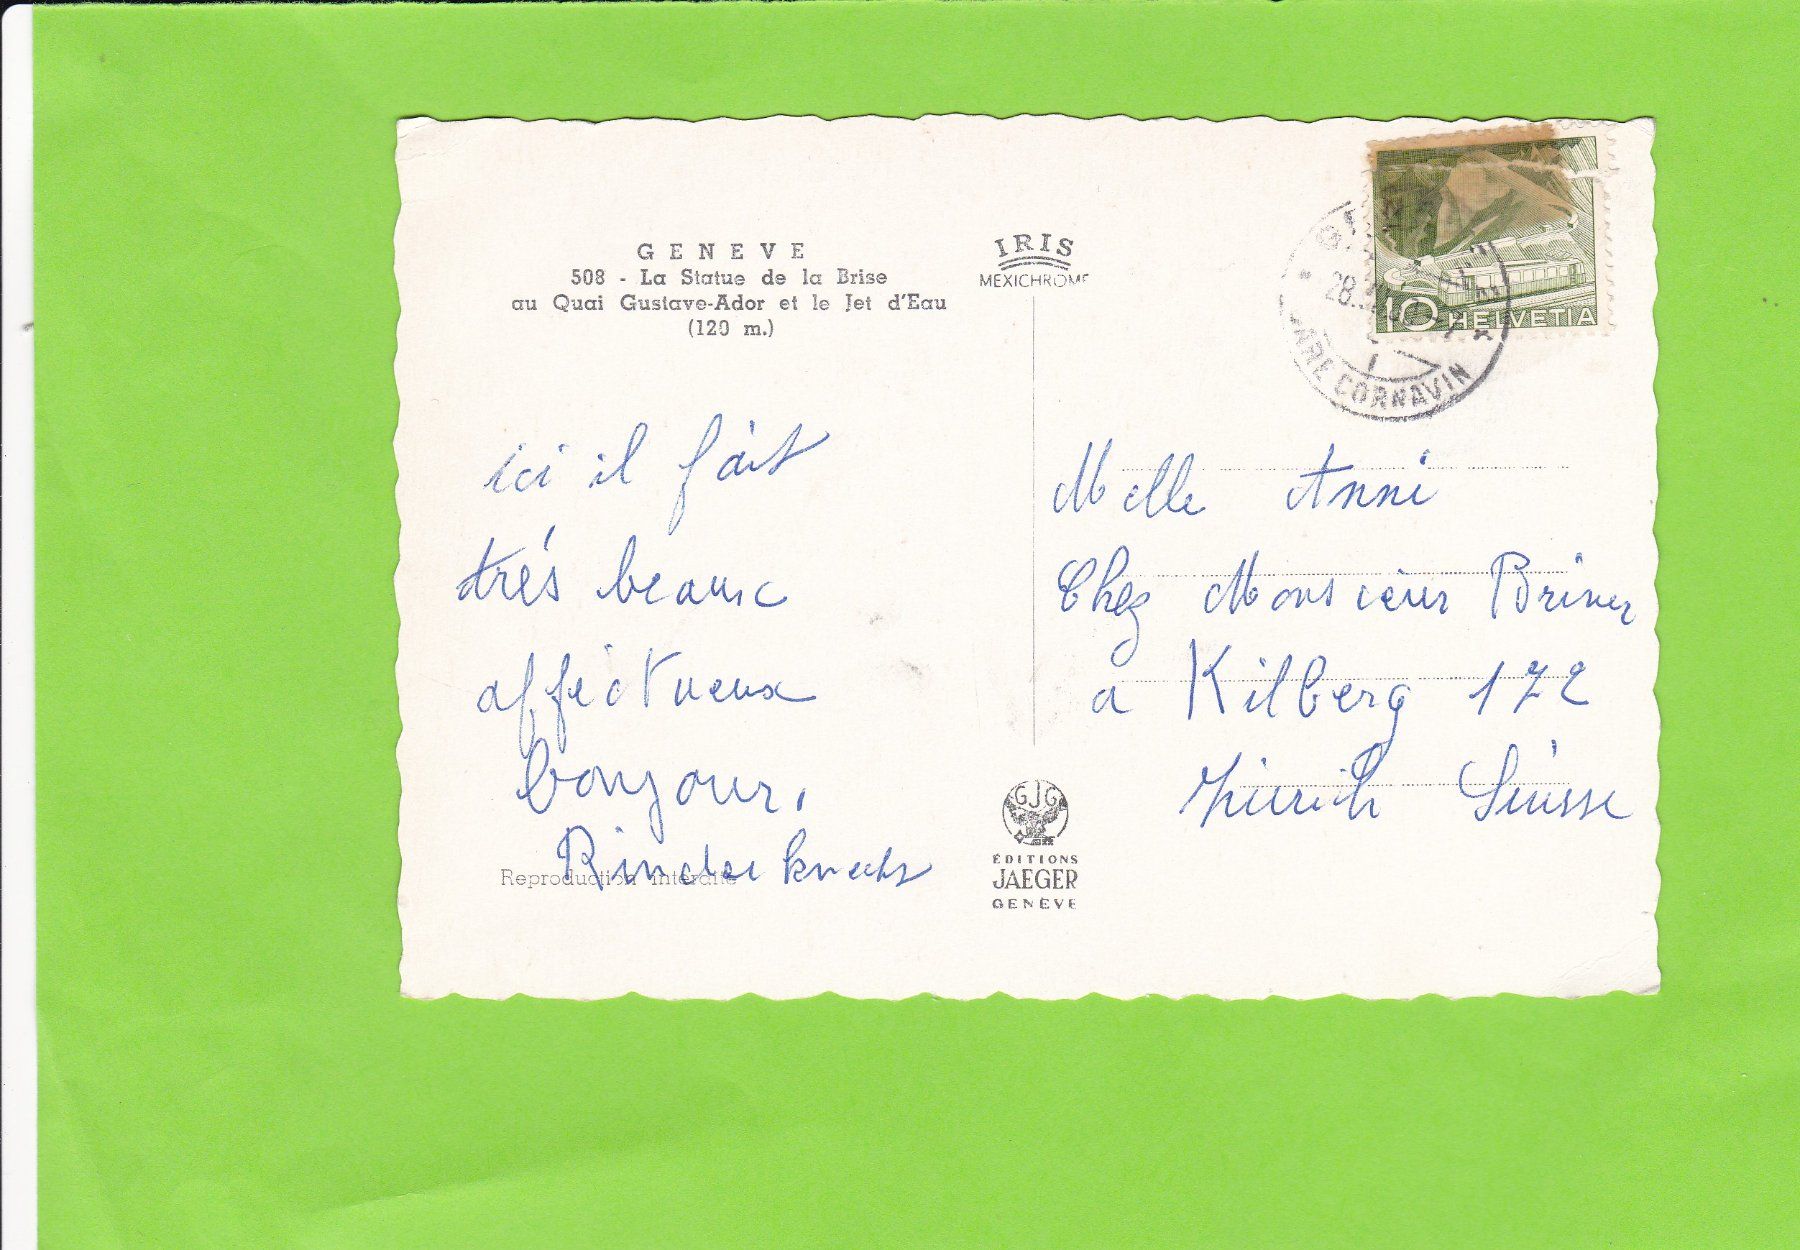 GENEVE
508 - La Statue de la Brise
au Quai Gustave-Ador et le Jet d'Eau
(120 m.)
IRIS
MEXICHROME
10 HELVETIA
GARE CORNAVIN
ici il fait
trés beaux
afféctueux
bonjour,
Rinderknecht
Reproduction interdite
Melle Anni
Chez Monsieur Briner
a Kilberg 172
Zürich Suisse
GJG
ÉDITIONS
JAEGER
GENÈVE